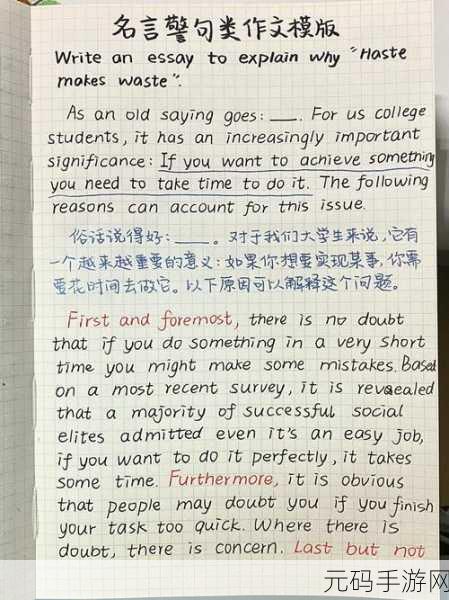 名言警句类作文模版
Write an essay to explain why "Haste
makes waste".
As an old saying goes: ___. For us college
students, it has an increasingly important
significance: If you want to achieve something
you need to take time to do it. The following
reasons can account for this issue.
俗话说得好: ___。对于我们大学生来说,它有
一个越来越重要的意义:如果你想要实现某事,你需
要花时间去做它。以下原因可以解释这个问题。
First and foremost, there is no doubt
that if you do something in a very short
time you might make some mistakes. Based
on a most recent survey, it is revealed
that a majority of successful social
elites admitted even it's an easy job,
if you want to do it perfectly, it takes
some time. Furthermore, it is obvious
that people may doubt you if you finish
your task too quick. Where there is
doubt, there is concern. Last but not
元码手游网